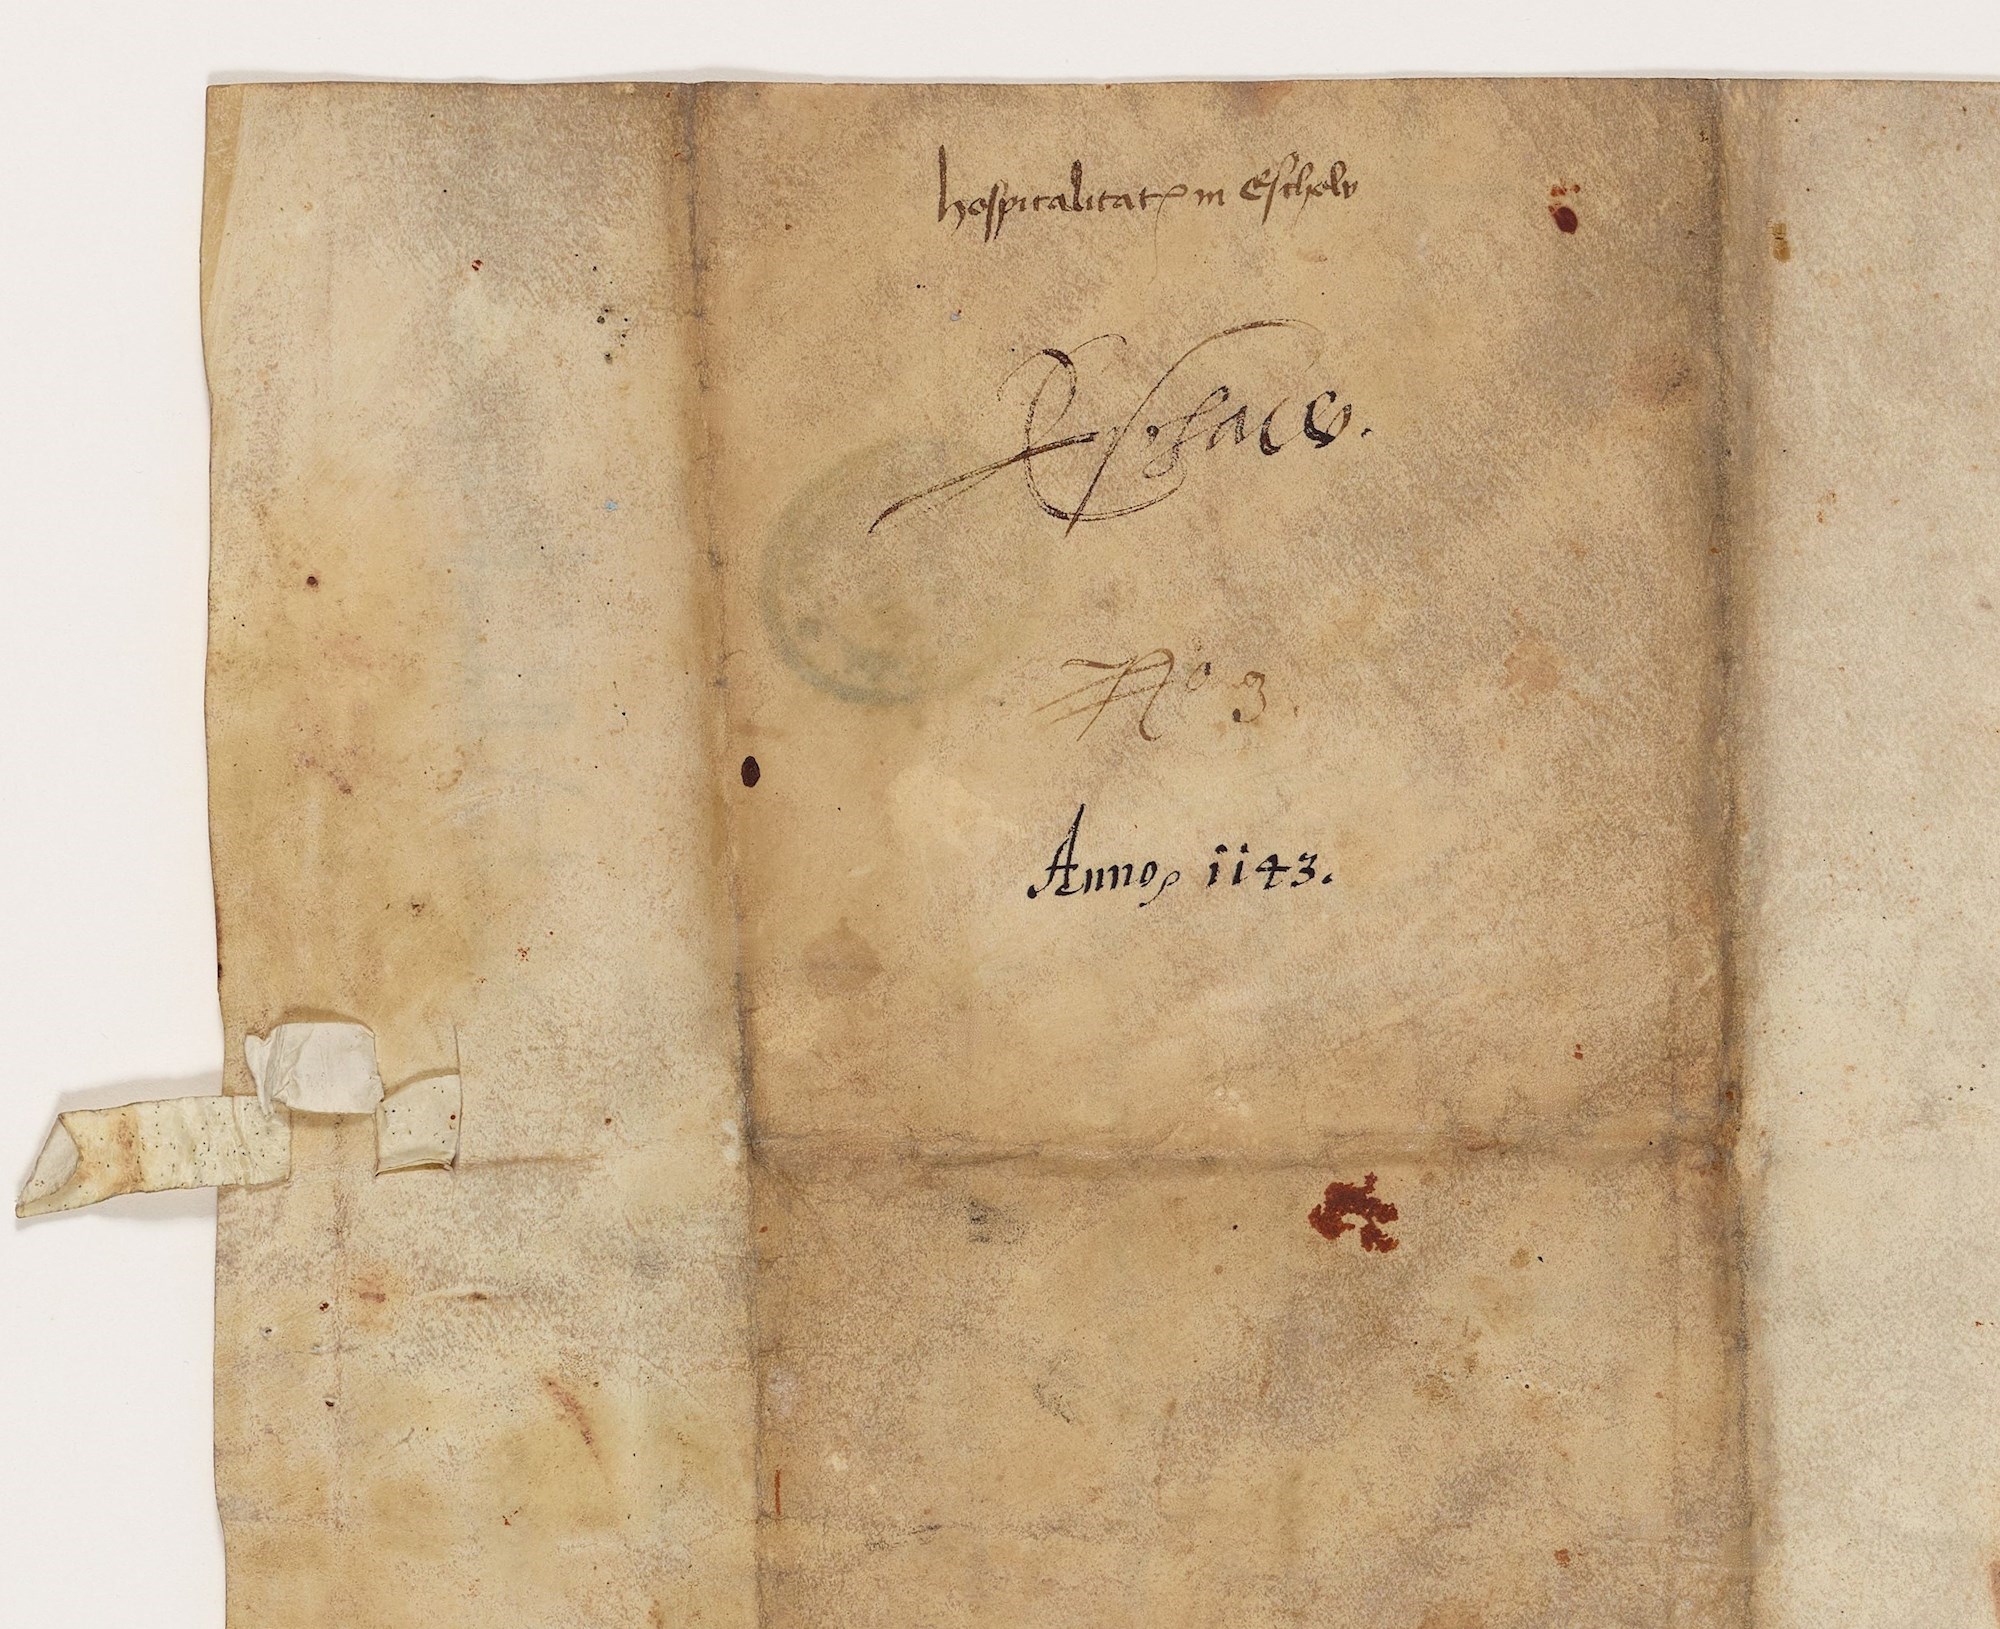 hospitalitatꝭ in Escholv
Eschacv.
No 3.
Anno, 1143.